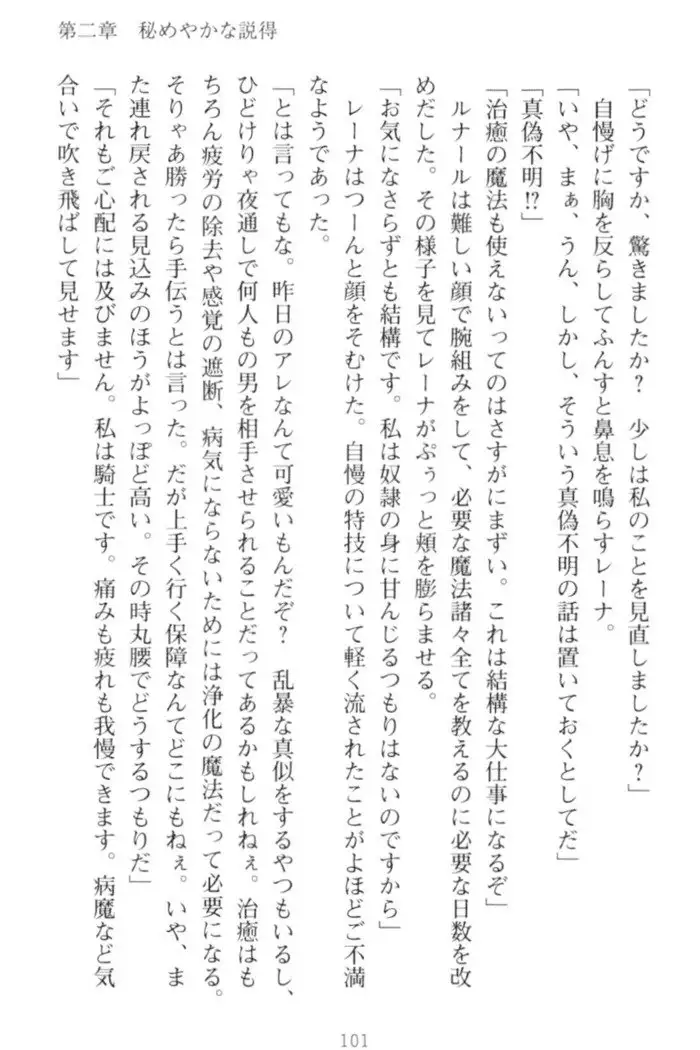 第二章　秘めやかな説得
「どうですか、驚きましたか？　少しは私のことを見直しましたか？」
自慢げに胸を反らしてふんすと鼻息を鳴らすレーナ。
「いや、まぁ、うん、しかし、そういう真偽不明の話は置いておくとしてだ」
「真偽不明⁉」
「治癒の魔法も使えないってのはさすがにまずい。これは結構な大仕事になるぞ」
ルナールは難しい顔で腕組みをして、必要な魔法諸々全てを教えるのに必要な日数を改
めだした。その様子を見てレーナがぷぅっと頬を膨らませる。
「お気になさらずとも結構です。私は奴隷の身に甘んじるつもりはないのですから」
レーナはつーんと顔をそむけた。自慢の特技について軽く流されたことがよほどご不満
なようであった。
「とは言ってもな。昨日のアレなんて可愛いもんだぞ？　乱暴な真似をするやつもいるし、
ひどけりゃ夜通しで何人もの男を相手させられることだってあるかもしれねぇ。治癒はも
ちろん疲労の除去や感覚の遮断、病気にならないためには浄化の魔法だって必要になる。
そりゃあ勝ったら手伝うとは言った。だが上手く行く保障なんてどこにもねぇ。いや、ま
た連れ戻される見込みのほうがよっぽど高い。その時丸腰でどうするつもりだ」
「それもご心配には及びません。私は騎士です。痛みも疲れも我慢できます。病魔など気
合いで吹き飛ばして見せます」
101